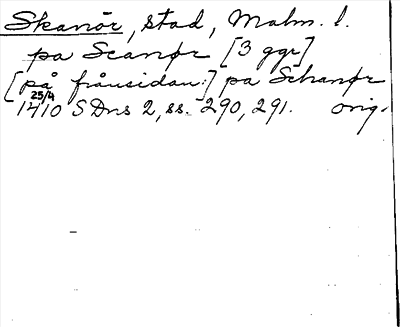 Skanör, stad, Malm. l.
pa Scanør [3 ggr]
[på frånsidan:] pa Schanør
25/4
1410 SDns 2, ss. 290, 291. orig.